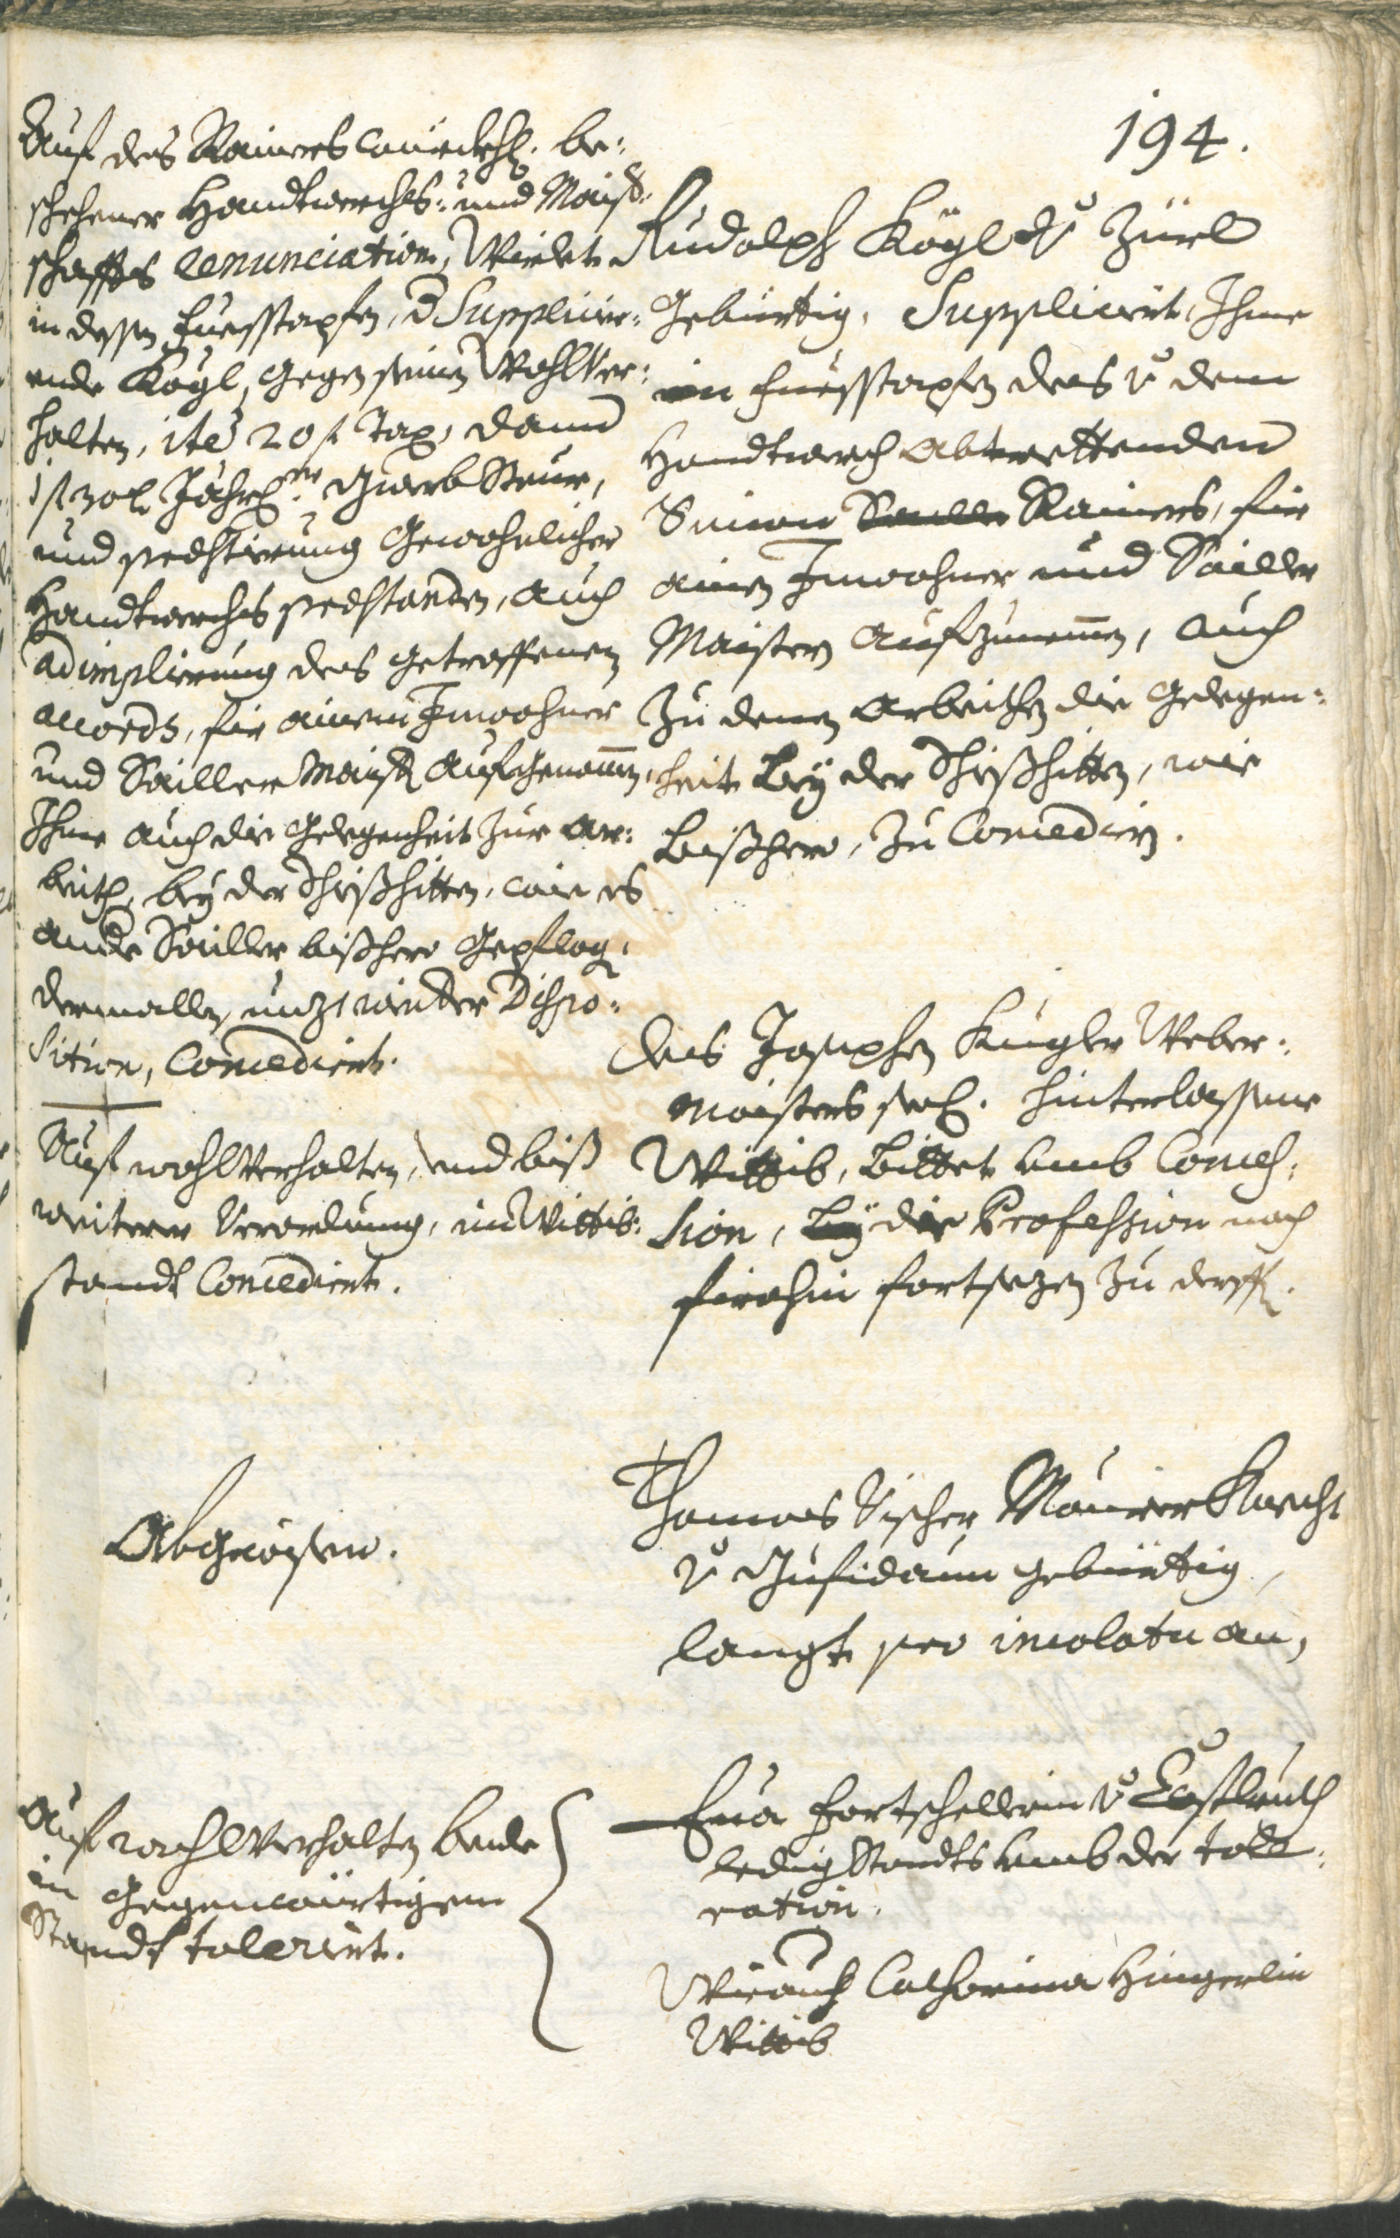 194.
Auf des Rainers beschehener
schehener Handtwerchs: und Maist:
schaffts renunciation, Wirdet
in dessen Fuesstapfen, d Supplicir:
ende Kögl, gegen seinen Wohlver:
halten, ite 20 f Tax, dann
1 f 30 x Jährl: Gwerb Steur,
und praestierung Gewohnlicher
Handtwerchs praestanden, auch
adimplierung des getroffenen
accords, fir ainem Inwohner
und Sailler Maister aufgenommen,
Ihme auch die Gelegenheit zur Ar:
beith, bey der Schißhitten, wie es
andere Sailler bißhero gepflogen,
dermallen unzt weiter Dispo:
sition, Concediert.
Rudolph Kögl zu Zürl
Gebürtig, Supplicirt, Ihme
in Fuesstapfen des v dem
Handtwerch abtrettenden
Simon Rainers, fir
ainen Inwohner und Sailler
Maistern aufzunemen, auch
zu denen Arbeithen die Gelegen:
heit bey der Schißhitten, wie
bißhero, zu Concedirn.
Auf wohlverhalten, und biß
weitere Verordnung, im Wittib:
standt Concediert.
Des Josephen Kugler Weber:
maisters seel. hinterlassene
Wittib, bittet umb Conces:
sion, die Profession noch
firohin fortsezen zu derffen.
Abgewisen.
Thomas Vischer Maurer Knecht
v Gufidaun gebürtig,
langt pro incolatu an,
Auf wohlverhalten beede
in Gegenwürtigem
Standt tolerirt.
Eva Fortschellerin v
ledig Standts umb der tolle:
ration.
Wie auch Catharina Hingerlin
Wittib